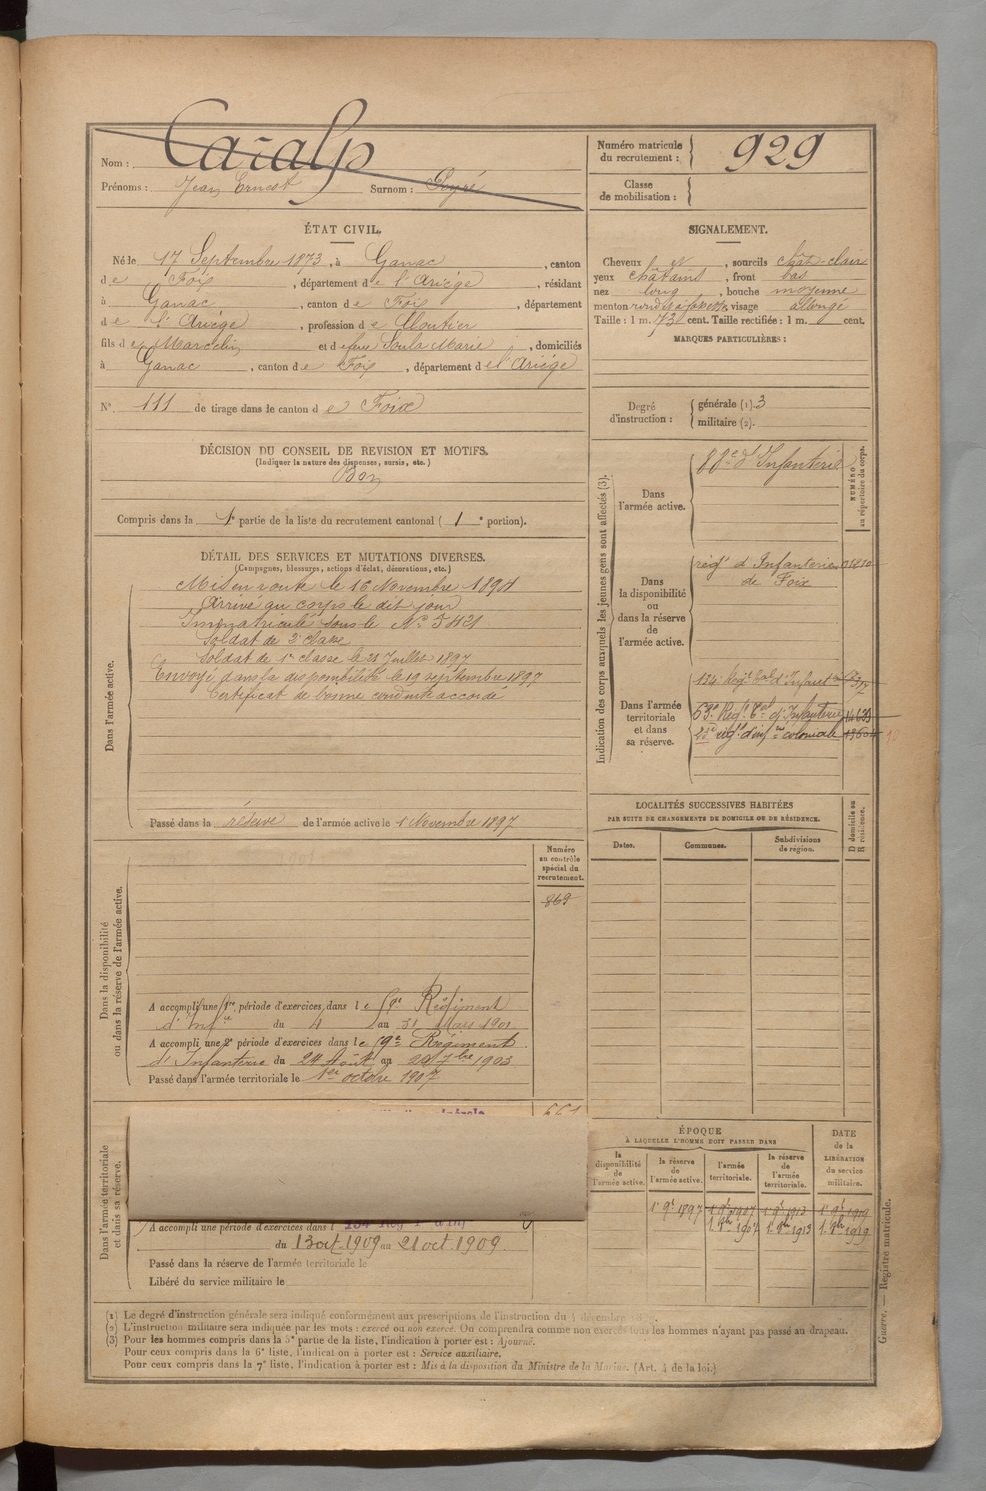 Nom : Caralp
Prénoms : Jean Ernest Surnom : Peyré
Numéro matricule du recrutement : 929
Classe de mobilisation :
ÉTAT CIVIL.
Né le 17 Septembre 1873, à Ganac, canton
de Foix, département de l'Ariège, résidant
à Ganac, canton de Foix, département
de l'Ariège, profession de Cloutier
fils de Marcelin et de feue Soula Marie, domiciliés
à Ganac, canton de Foix, département de l'Ariège
N° 111 de tirage dans le canton de Foix
SIGNALEMENT.
Cheveux et, sourcils chât-clair
yeux châtains, front bas
nez long, bouche moyenne
menton rond à fossette, visage allongé
Taille : 1 m. 73 cent. Taille rectifiée : 1 m. cent.
MARQUES PARTICULIÈRES :
Degré d'instruction : générale (1). 3
militaire (2).
DÉCISION DU CONSEIL DE REVISION ET MOTIFS.
(Indiquer la nature des dispenses, sursis, etc.)
Bon
Compris dans la 1e partie de la liste du recrutement cantonal (1e portion).
DÉTAIL DES SERVICES ET MUTATIONS DIVERSES.
(Campagnes, blessures, actions d'éclat, décorations, etc.)
Dans l'armée active.
Mis en route le 16 Novembre 1894
Arrivé au corps le dit jour
Immatriculé sous le N° 5421
Soldat de 2e classe
Soldat de 1re classe le 21 Juillet 1897
Envoyé dans la disponibilité le 19 septembre 1897
Certificat de bonne conduite accordé
Passé dans la réserve de l'armée active le 1 Novembre 1897
Indication des corps auxquels les jeunes gens sont affectés (3).
NUMÉRO au répertoire du corps.
Dans l'armée active. 88e d'Infanterie
Dans la disponibilité ou dans la réserve de l'armée active.
régt d'Infanterie
de Foix
Dans l'armée territoriale et dans sa réserve.
134e Regt tal d'Infant
63e Regt tal d'Infanterie
régt d'infie coloniale
LOCALITÉS SUCCESSIVES HABITÉES
PAR SUITE DE CHANGEMENTS DE DOMICILE OU DE RÉSIDENCE.
Dates. Communes. Subdivisions de région. D domicile ou R résidence.
Dans la disponibilité ou dans la réserve de l'armée active.
Numéro au contrôle spécial du recrutement.
869
A accompli une 1re période d'exercices dans le 59e Régiment
d'Infie du 4 au 31 Mars 1901
A accompli une 2e période d'exercices dans le 59e Régiment
d'Infanterie du 24 Août au 20 7bre 1903
Passé dans l'armée territoriale le 1er octobre 1907
Dans l'armée territoriale et dans sa réserve.
661
A accompli une période d'exercices dans l 134 Reg T d'Inf
du 13 oct. 1909 au 21 oct 1909
Passé dans la réserve de l'armée territoriale le
Libéré du service militaire le
ÉPOQUE
À LAQUELLE L'HOMME DOIT PASSER DANS
la disponibilité de l'armée active. la réserve de l'armée active. l'armée territoriale. la réserve de l'armée territoriale.
DATE de la LIBÉRATION du service militaire.
1 9b 1897 1 9b 1907 1 9b 1913 1 9b 1919
1 8bre 1907 1 8bre 1913 1 8bre 1919
(1) Le degré d'instruction générale sera indiqué conformément aux prescriptions de l'instruction du 4 décembre
(2) L'instruction militaire sera indiquée par les mots : exercé ou non exercé. On comprendra comme non exercés tous les hommes n'ayant pas passé au drapeau.
(3) Pour les hommes compris dans la 5e partie de la liste, l'indication à porter est : Ajourné.
Pour ceux compris dans la 6e liste, l'indication à porter est : Service auxiliaire.
Pour ceux compris dans la 7e liste, l'indication à porter est : Mis à la disposition du Ministre de la Marine. (Art. 4 de la loi.)
Guerre. — Registre matricule.